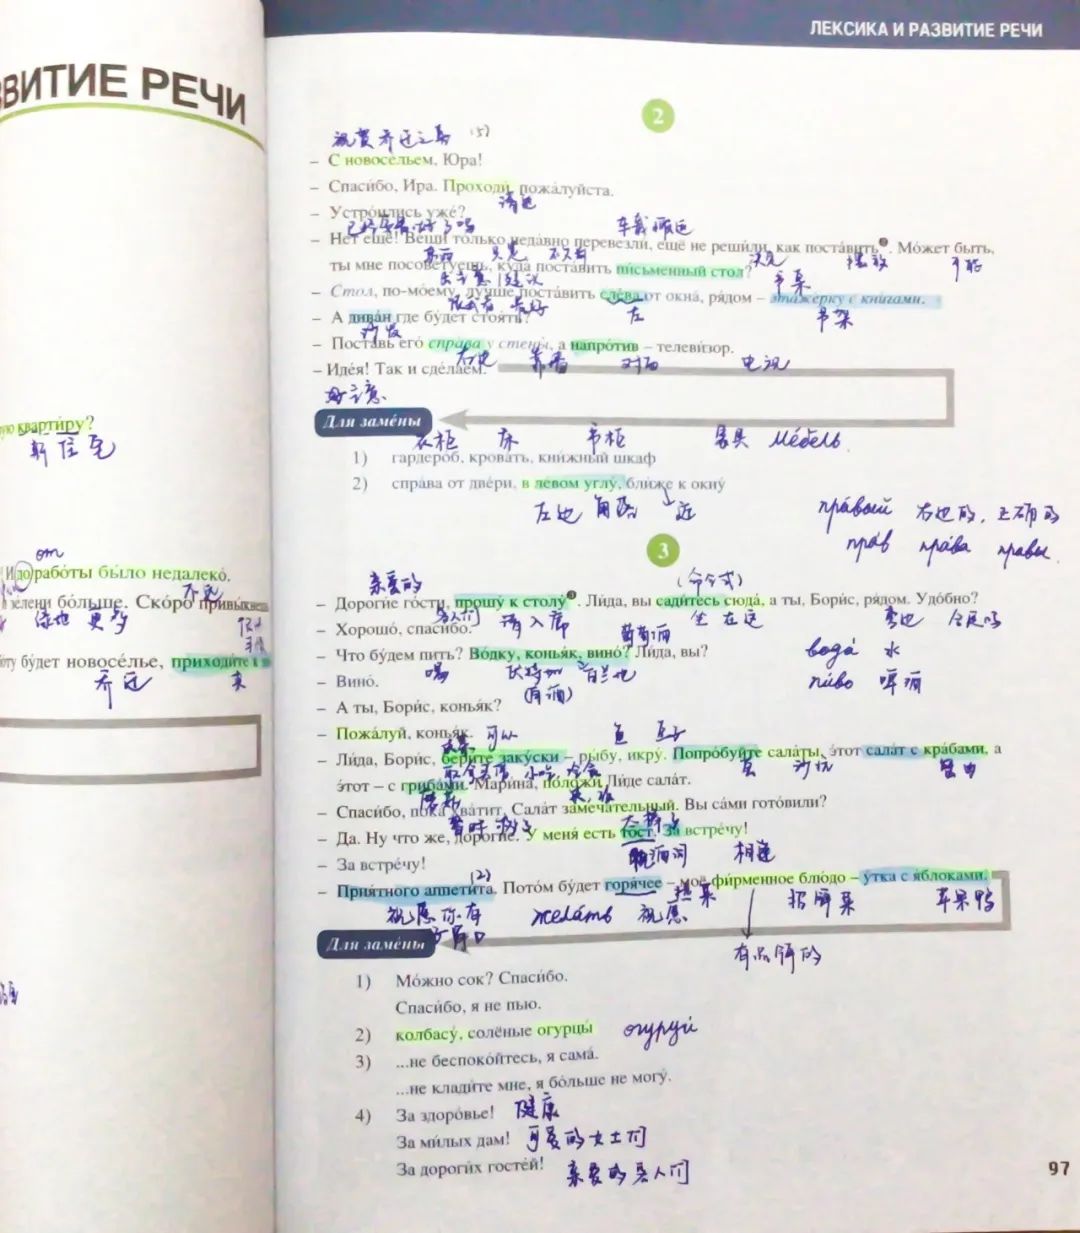 ЗВИТИЕ РЕЧИ
ую кварти́ру?
新住宅
от
И до рабо́ты бы́ло недалеко́.
зелени бо́льше. Ско́ро привы́кнешь
绿地 更多
бо́ту бу́дет новосе́лье, приходи́те к
乔迁 来
ЛЕКСИКА И РАЗВИТИЕ РЕЧИ
2
祝贺乔迁之喜 (5)
– С новосе́льем, Юра!
– Спаси́бо, Ира. Проходи́, пожа́луйста.
请进
– Устро́ились уже́?
已经安置好了吗 车载搬运
– Нет ещё! Вещи то́лько неда́вно перевезли́, ещё не реши́ли, как поста́вить. Мо́жет быть,
东西 只是 不久前 决定 摆放 可能
ты мне посове́туешь, куда́ поста́вить пи́сьменный стол?
出主意 | 建议 书桌
– Стол, по-мо́ему, лу́чше поста́вить сле́ва от окна́, ря́дом – этаже́рку с кни́гами.
依我看 最好 左 书架
– А дива́н где бу́дет стоя́ть?
沙发
– Поста́вь его́ спра́ва у стены́, а напро́тив – телеви́зор.
右边 靠着 对面 电视
– Иде́я! Так и сде́лаем.
好主意
Для заме́ны
衣柜 床 书柜 家具 ме́бель
1) гардеро́б, крова́ть, кни́жный шкаф
2) спра́ва от две́ри, в ле́вом углу́, бли́же к окну́
左边 角落 近 пра́вый 右边的, 正确的
прав права́ правы
3
亲爱的 (命令式)
– Дороги́е го́сти, прошу́ к столу́. Ли́да, вы сади́тесь сюда́, а ты, Бори́с, ря́дом. Удо́бно?
客人们 请入席 坐在这 旁边 合适吗
– Хорошо́, спаси́бо.
葡萄酒
– Что бу́дем пить? Во́дку, конья́к, вино́? Ли́да, вы? вода́ 水
喝 伏特加 白兰地
– Вино́. пи́во 啤酒
(有酒)
– А ты, Бори́с, конья́к?
– Пожа́луй, конья́к. 可以 鱼 鱼子
– Ли́да, Бори́с, бери́те заку́ски – ры́бу, икру́. Попро́буйте сала́ты, э́тот сала́т с кра́бами, а
小吃 冷盘 沙拉
э́тот – с гриба́ми. Мари́на, положи́ Ли́де сала́т.
蘑菇
– Спаси́бо, пока́ хва́тит. Сала́т замеча́тельный. Вы са́ми гото́вили?
暂时 够了
– Да. Ну что же, дороги́е. У меня́ есть тост. За встре́чу!
祝酒词 相逢
– За встре́чу!
(2)
– Прия́тного аппети́та. Пото́м бу́дет горя́чее – моё фи́рменное блю́до – у́тка с я́блоками.
祝愿你有 желать 祝愿 热菜 招牌菜 苹果鸭
好胃口
有品牌的
Для заме́ны
1) Мо́жно сок? Спаси́бо.
Спаси́бо, я не пью.
2) колбасу́, солёные огурцы́ огуруй
3) ...не беспоко́йтесь, я сама́.
...не клади́те мне, я бо́льше не могу́.
4) За здоро́вье! 健康
За ми́лых дам! 可爱的女士们
За дороги́х госте́й! 亲爱的客人们
97